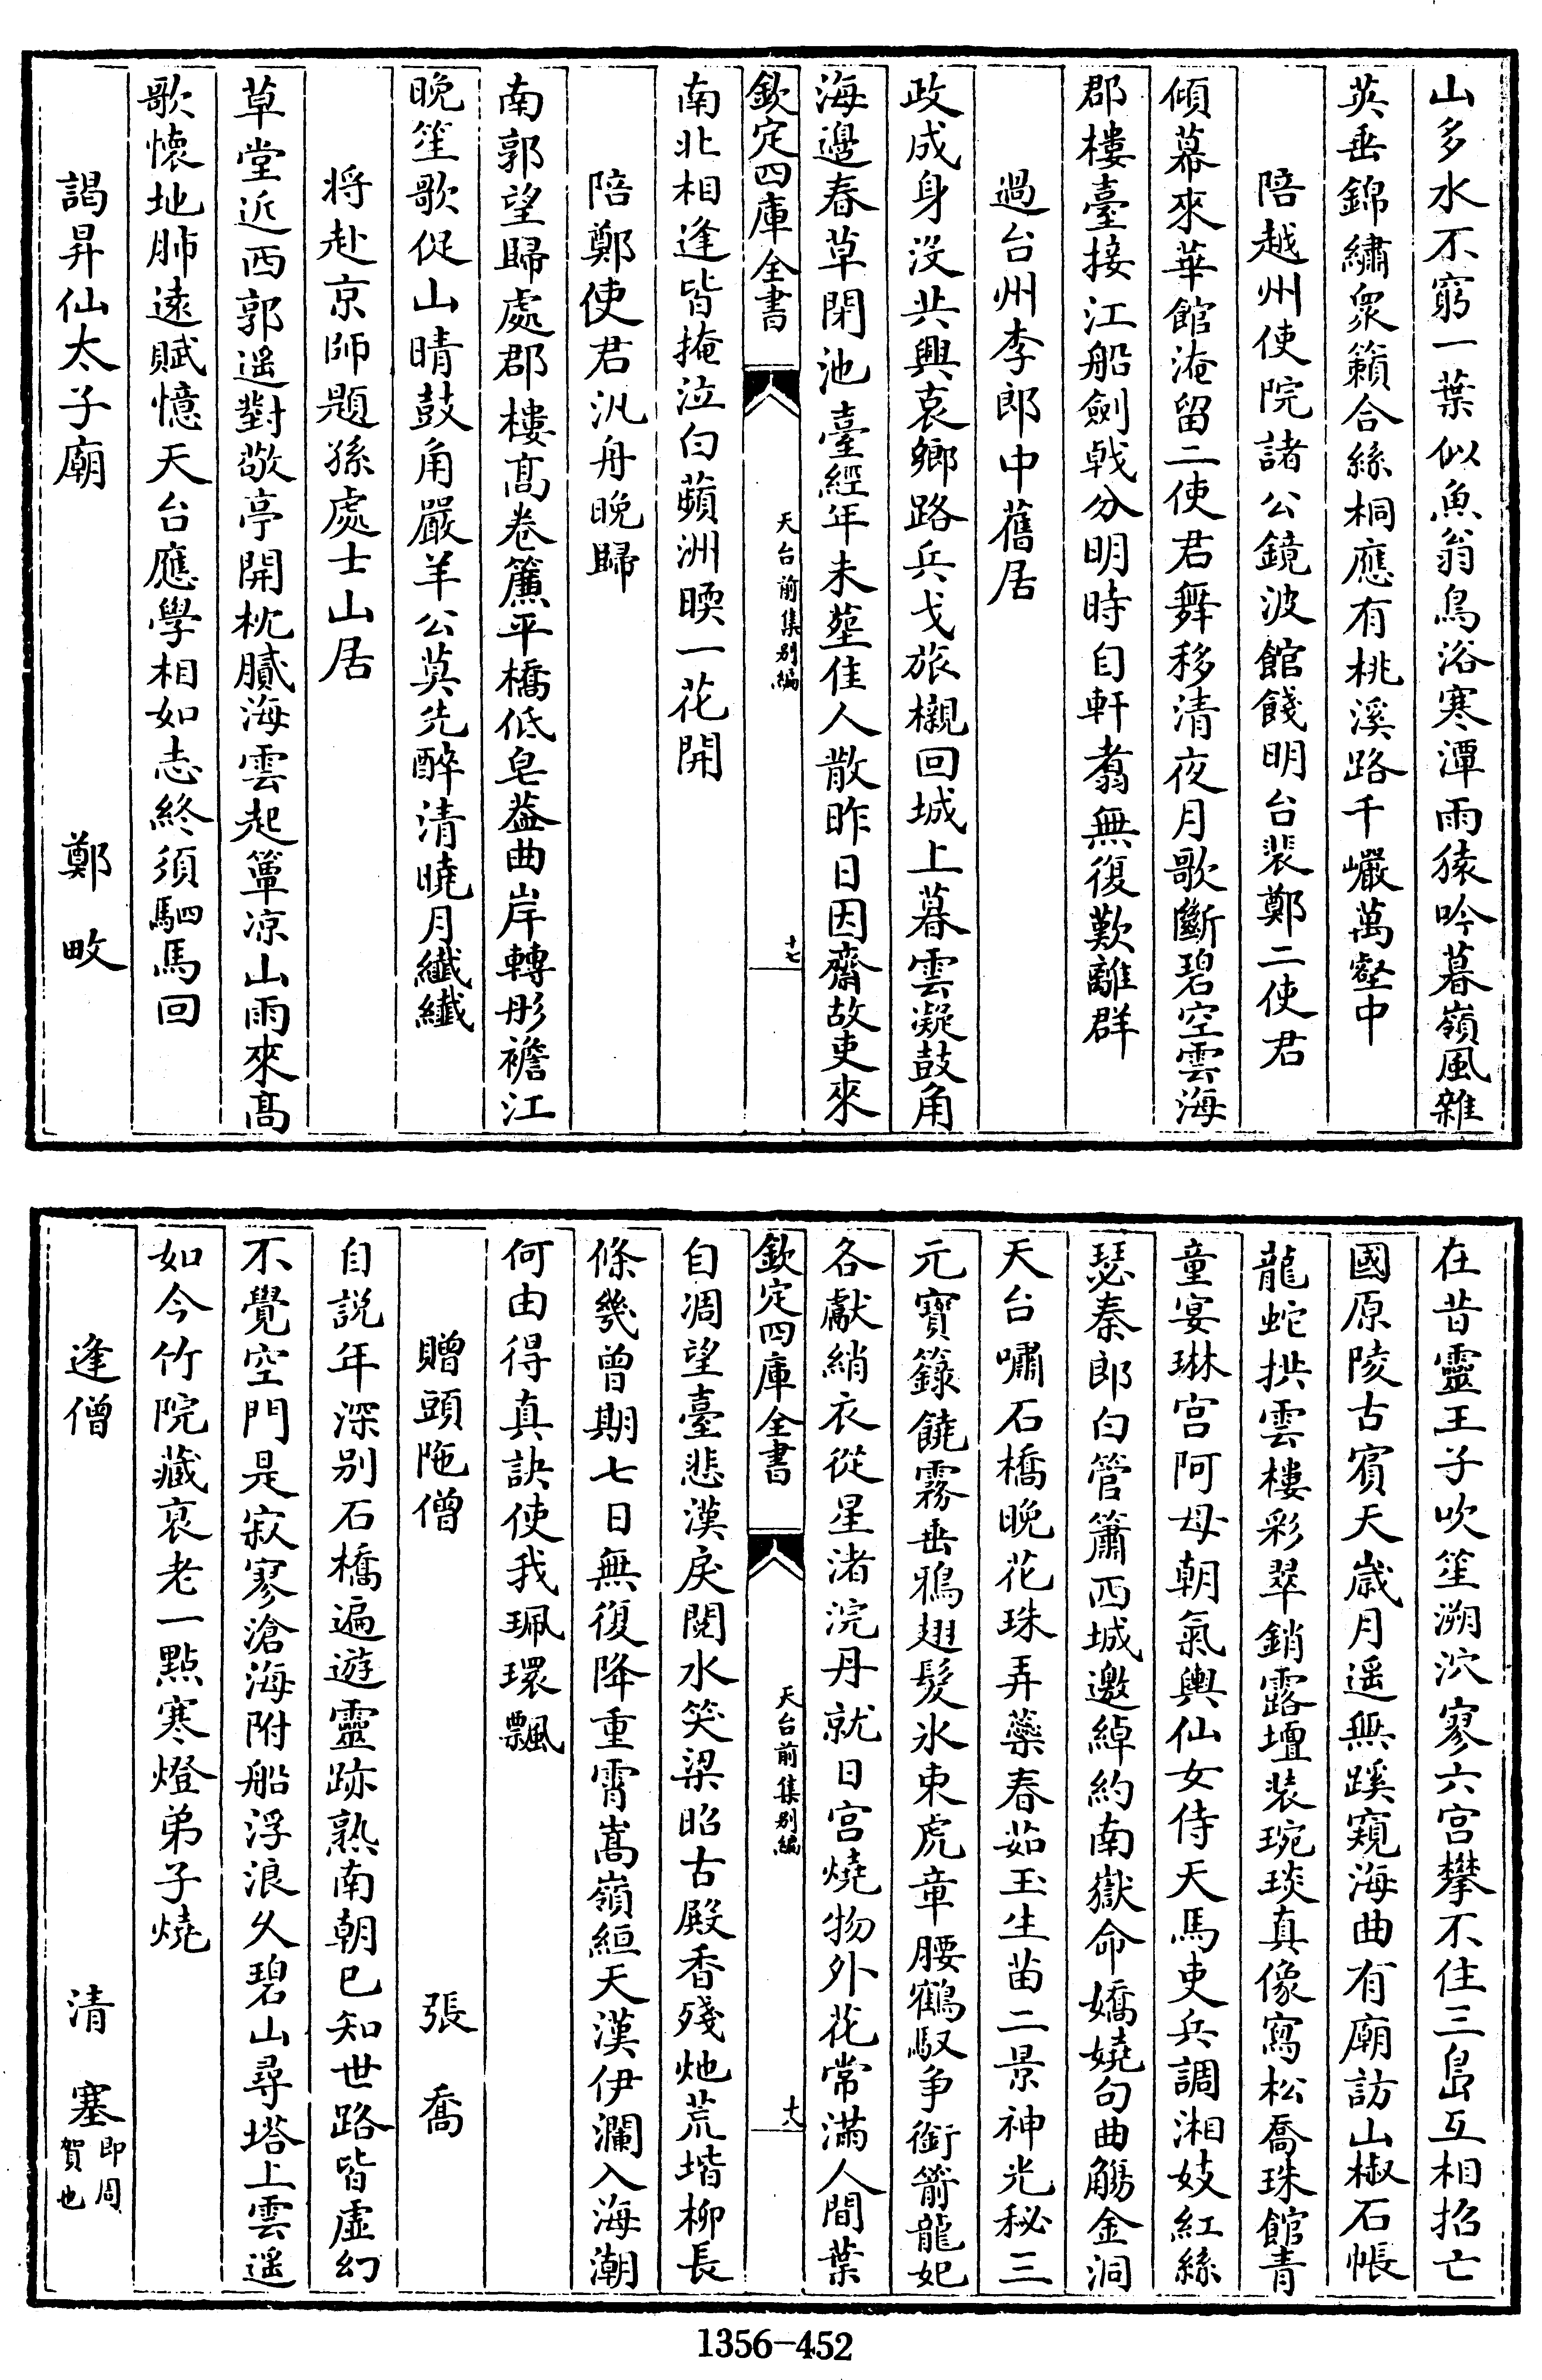 山多水不窮一葉似魚翁鳥浴寒潭雨猿吟暮嶺風雜
英垂錦繡衆籟合絲桐應有桃溪路千巖萬壑中
陪越州使院諸公鏡波館餞明台裴鄭二使君
傾幕來華館淹留二使君舞移清夜月歌斷碧空雲海
郡樓臺接江船劍戟分明時自軒翥無復歎離群
過台州李郎中舊居
政成身没共興哀鄉路兵戈旅櫬回城上暮雲凝鼓角
海邊春草閉池臺經年未葬佳人散昨日因齋故吏來
欽定四庫全書
天台前集别編
十七
南北相逢皆掩泣白蘋洲暖一花開
陪鄭使君汎舟晚歸
南郭望歸處郡樓髙卷簾平橋低皂蓋曲岸轉彤襜江
晚笙歌促山晴鼓角嚴羊公莫先醉清曉月纖纖
将赴京師題孫處士山居
草堂近西郭遥對敬亭開枕膩海雲起簟凉山雨來髙
歌懷地肺遠賦憶天台應學相如志終須駟馬回
謁昇仙太子廟 鄭畋
在昔靈王子吹笙溯泬寥六宫攀不住三島互相招亡
國原陵古賓天歲月遥無蹊窺海曲有廟訪山椒石帳
龍蛇拱雲樓彩翠銷露壇装琬琰真像寫松喬珠館青
童宴琳宫阿母朝氣輿仙女侍天馬吏兵調湘妓紅絲
瑟秦郎白管簫西城邀綽約南嶽命嬌嬈句曲觴金洞
天台嘯石橋晚花珠弄蘂春茹玉生苗二景神光秘三
元寳籙饒霧垂鴉翅髮氷束虎章腰鶴馭争銜箭龍妃
各獻綃衣從星渚浣丹就日宫燒物外花常滿人間葉
欽定四庫全書
天台前集别編
十八
自凋望臺悲漢戾閱水笑梁昭古殿香殘灺荒堦柳長
條幾曾期七日無復降重霄嵩嶺絙天漢伊瀾入海潮
何由得真訣使我珮環飄
贈頭陁僧 張喬
自説年深别石橋遍遊靈跡熟南朝已知世路皆虚幻
不覺空門是寂寥滄海附船浮浪久碧山尋塔上雲遥
如今竹院藏衰老一點寒燈弟子燒
逢僧 清塞即周賀也
1356-452